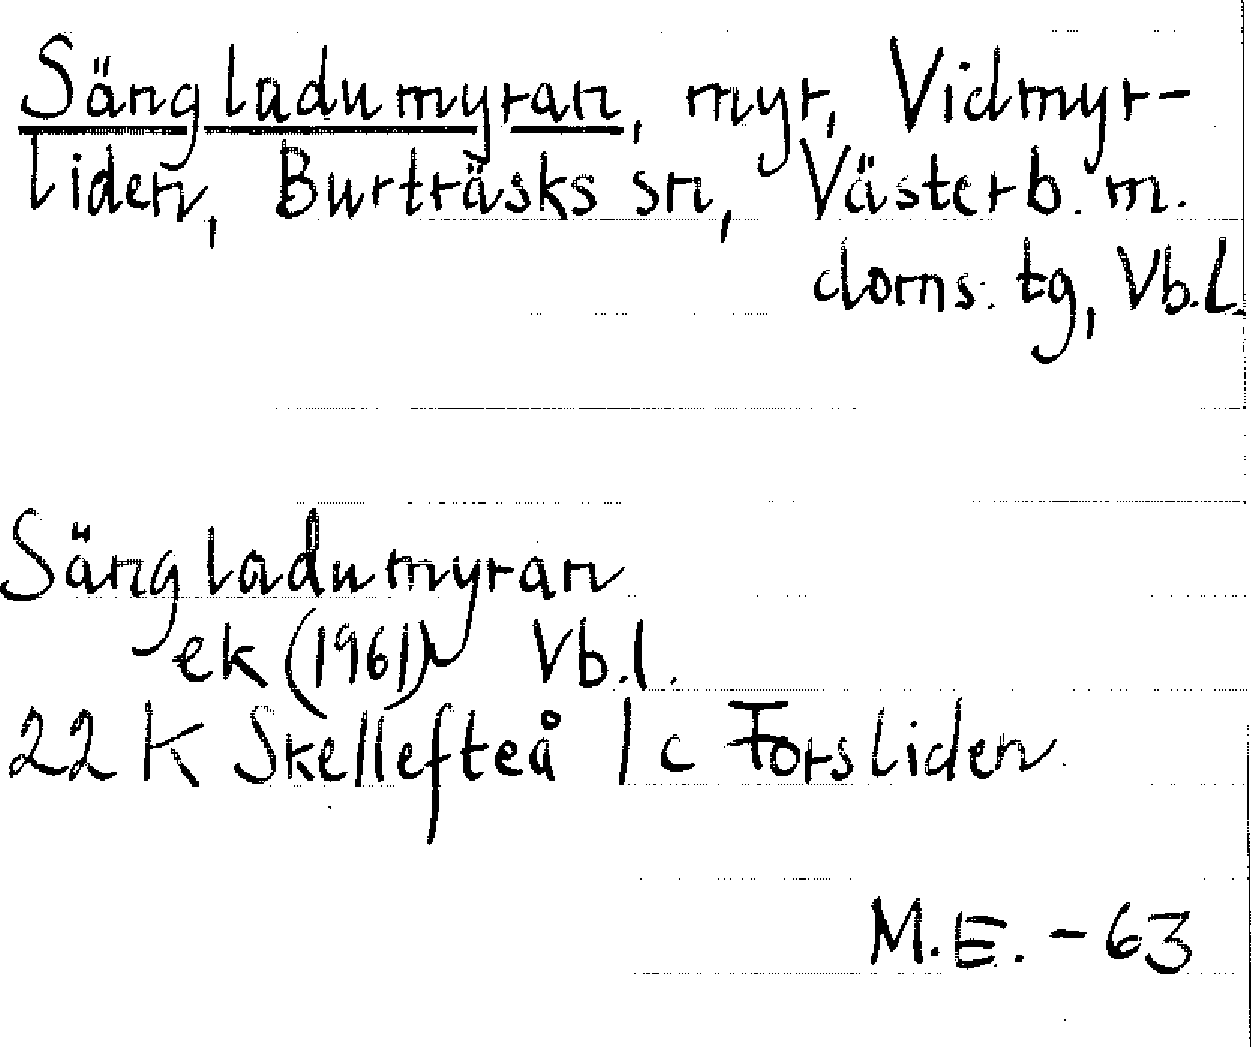 Sängladumyran, myr, Vidmyr-
liden, Burträsks sn, Västerb. m.
doms. tg, Vb.L.
Sängladumyran
ek (1961) Vb.l.
22 K Skellefteå 1c Forsliden
M.E. - 63